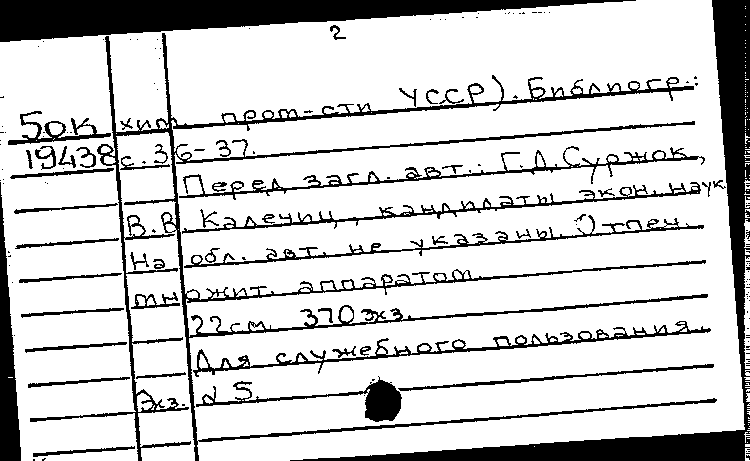 2
50К хим. пром-сти УССР). Библиогр.:
19438 с. 36-37.
Перед загл. авт.: Г.Д. Суржок,
В.В. Калечиц, кандидаты экон. наук.
На обл. авт. не указаны. Отпеч.
множит. аппаратом.
22см. 370 экз.
Для служебного пользования.
Экз. 5.